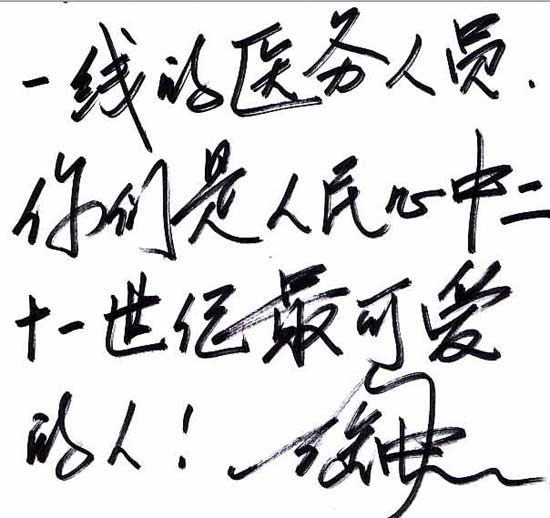 一线的医务人员.
你们是人民心中二
十一世纪最可爱
的人！